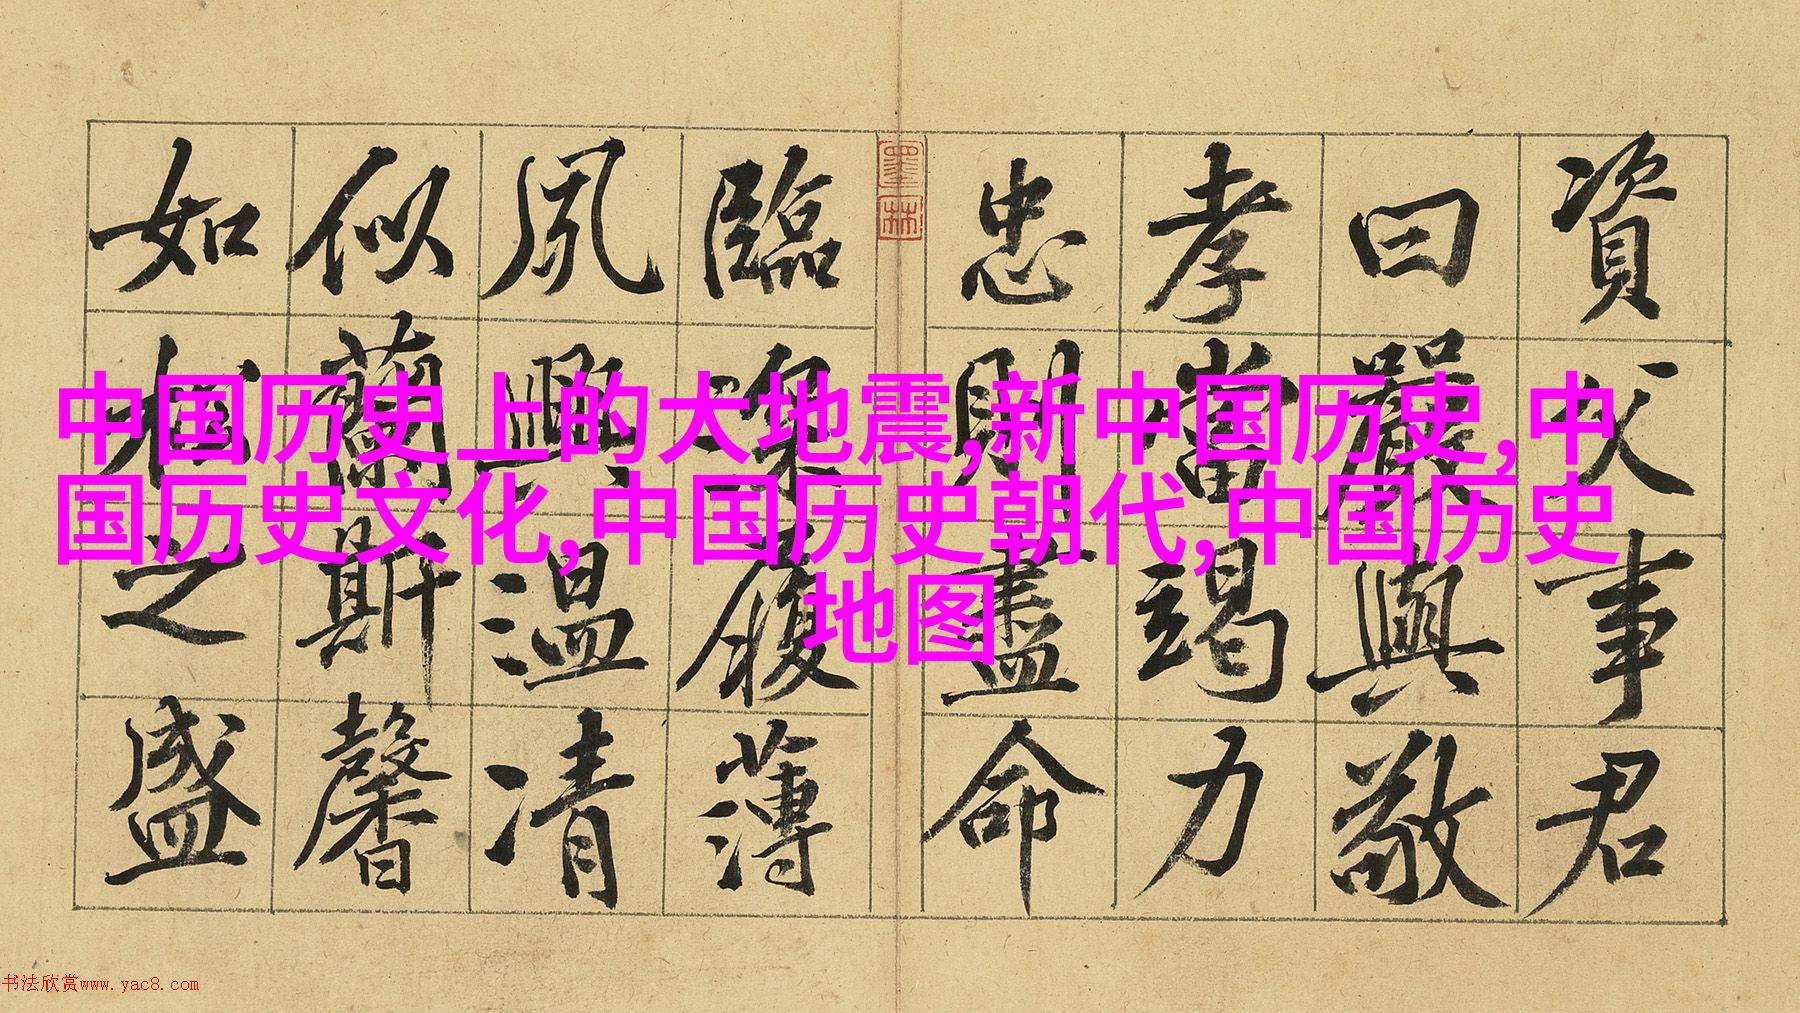 資父事君
曰嚴與敬
孝當竭力
忠則盡命
臨深履薄
夙興溫凊
似蘭斯馨
如松之盛
墨林
中国历史上的大地震,新中国历史,中
国历史文化,中国历史朝代,中国历史
地图
书法欣赏www.yac8.com